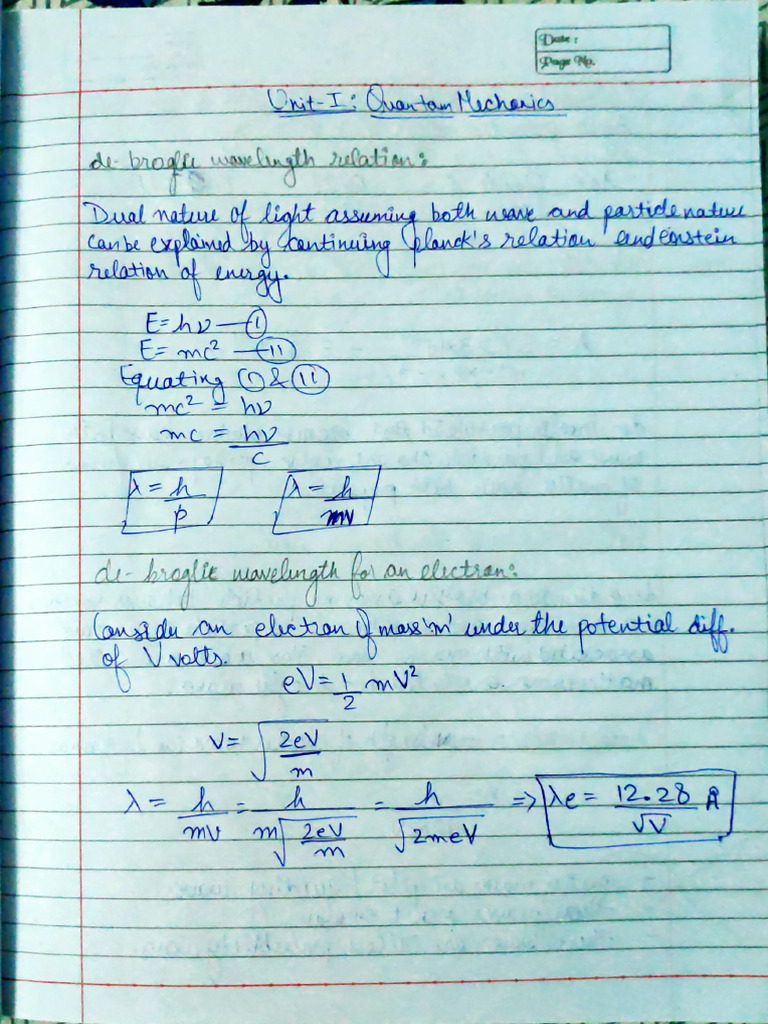 Date :
Page No.
Unit-I: Quantam Mechanics
de-broglie wavelength relation:
Dual nature of light assuming both wave and particle nature
can be explained by continuing planck's relation and einstein
relation of energy.
E = hν — (I)
E = mc² — (II)
Equating (I) & (II)
mc² = hν
mc = hν/c
λ = h/p    λ = h/mv
de-broglie wavelength for an electron:
Consider an electron of mass 'm' under the potential diff.
of V volts.
eV = 1/2 mV²
V = √(2eV/m)
λ = h/mv = h/(m√(2eV/m)) = h/√(2meV) => λe = 12.28/√V Å